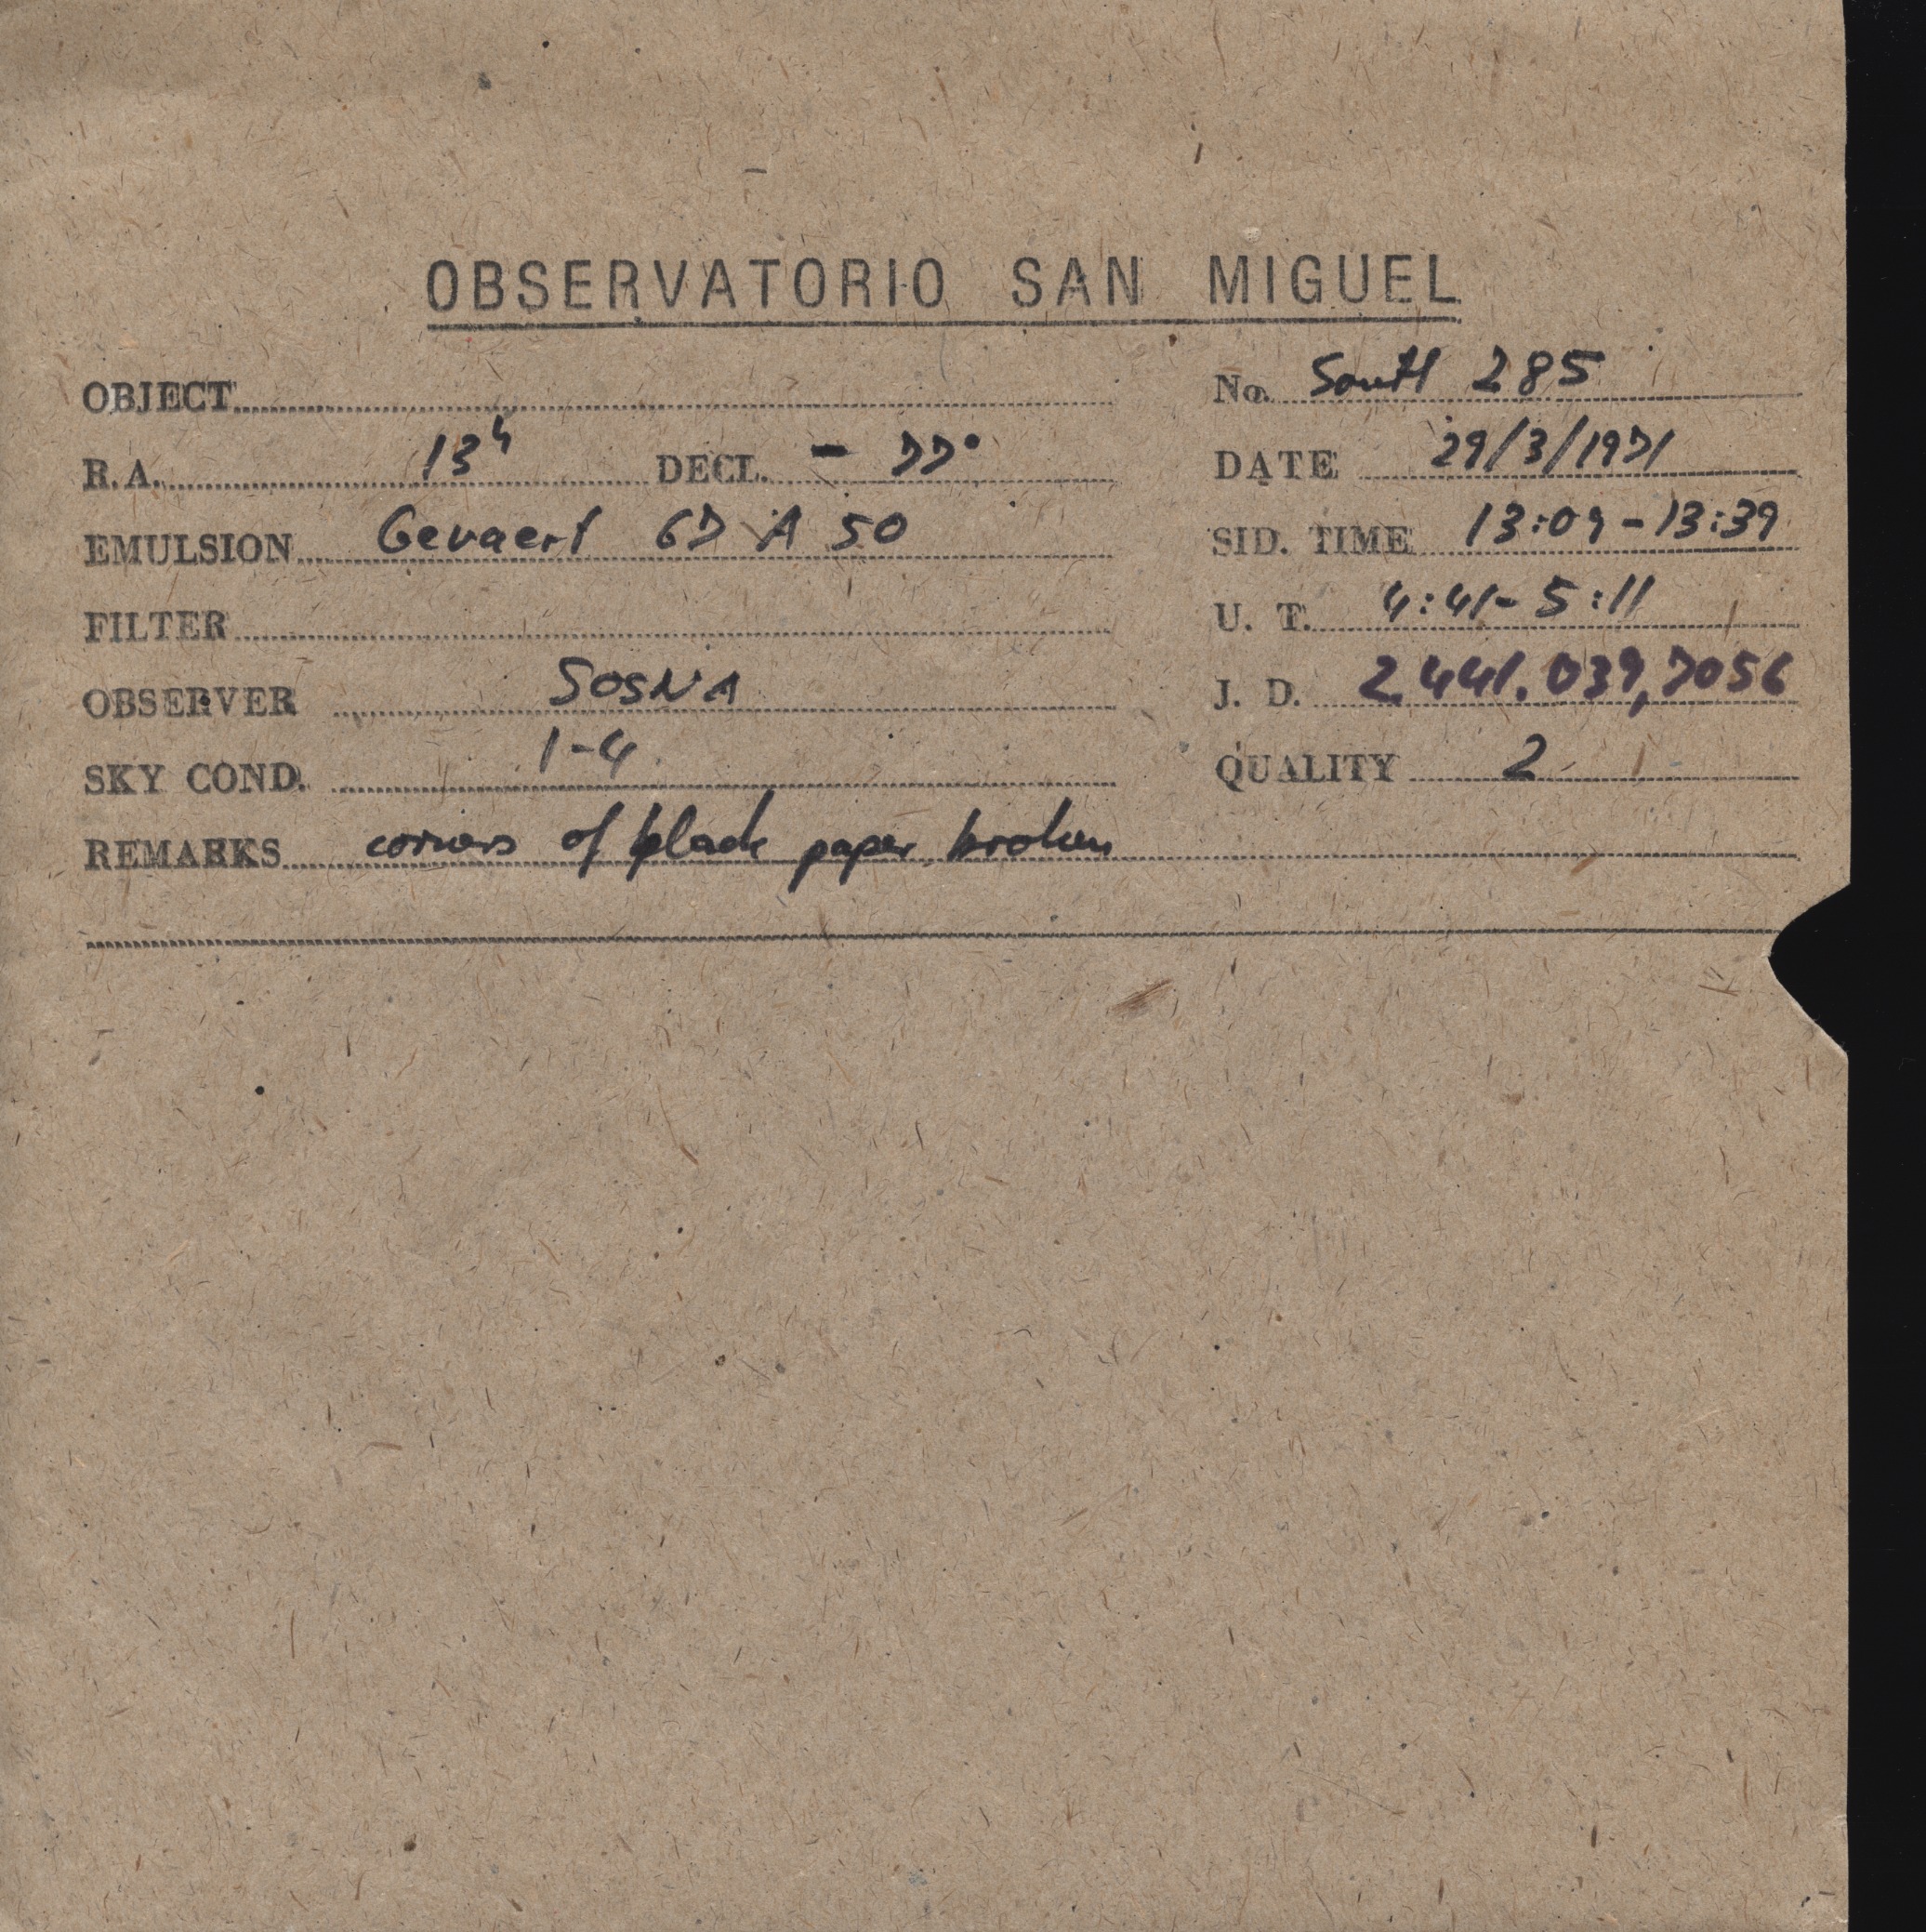 OBSERVATORIO SAN MIGUEL
OBJECT
No. South 285
R.A. 13h DECL. - 77°
DATE 29/3/1971
EMULSION Gevaert 67 A 50
SID. TIME 13:09-13:39
FILTER
U. T. 4:41-5:11
OBSERVER SOSNA
J. D. 2.441.039,7056
SKY COND. 1-4
QUALITY 2
REMARKS corners of black paper broken